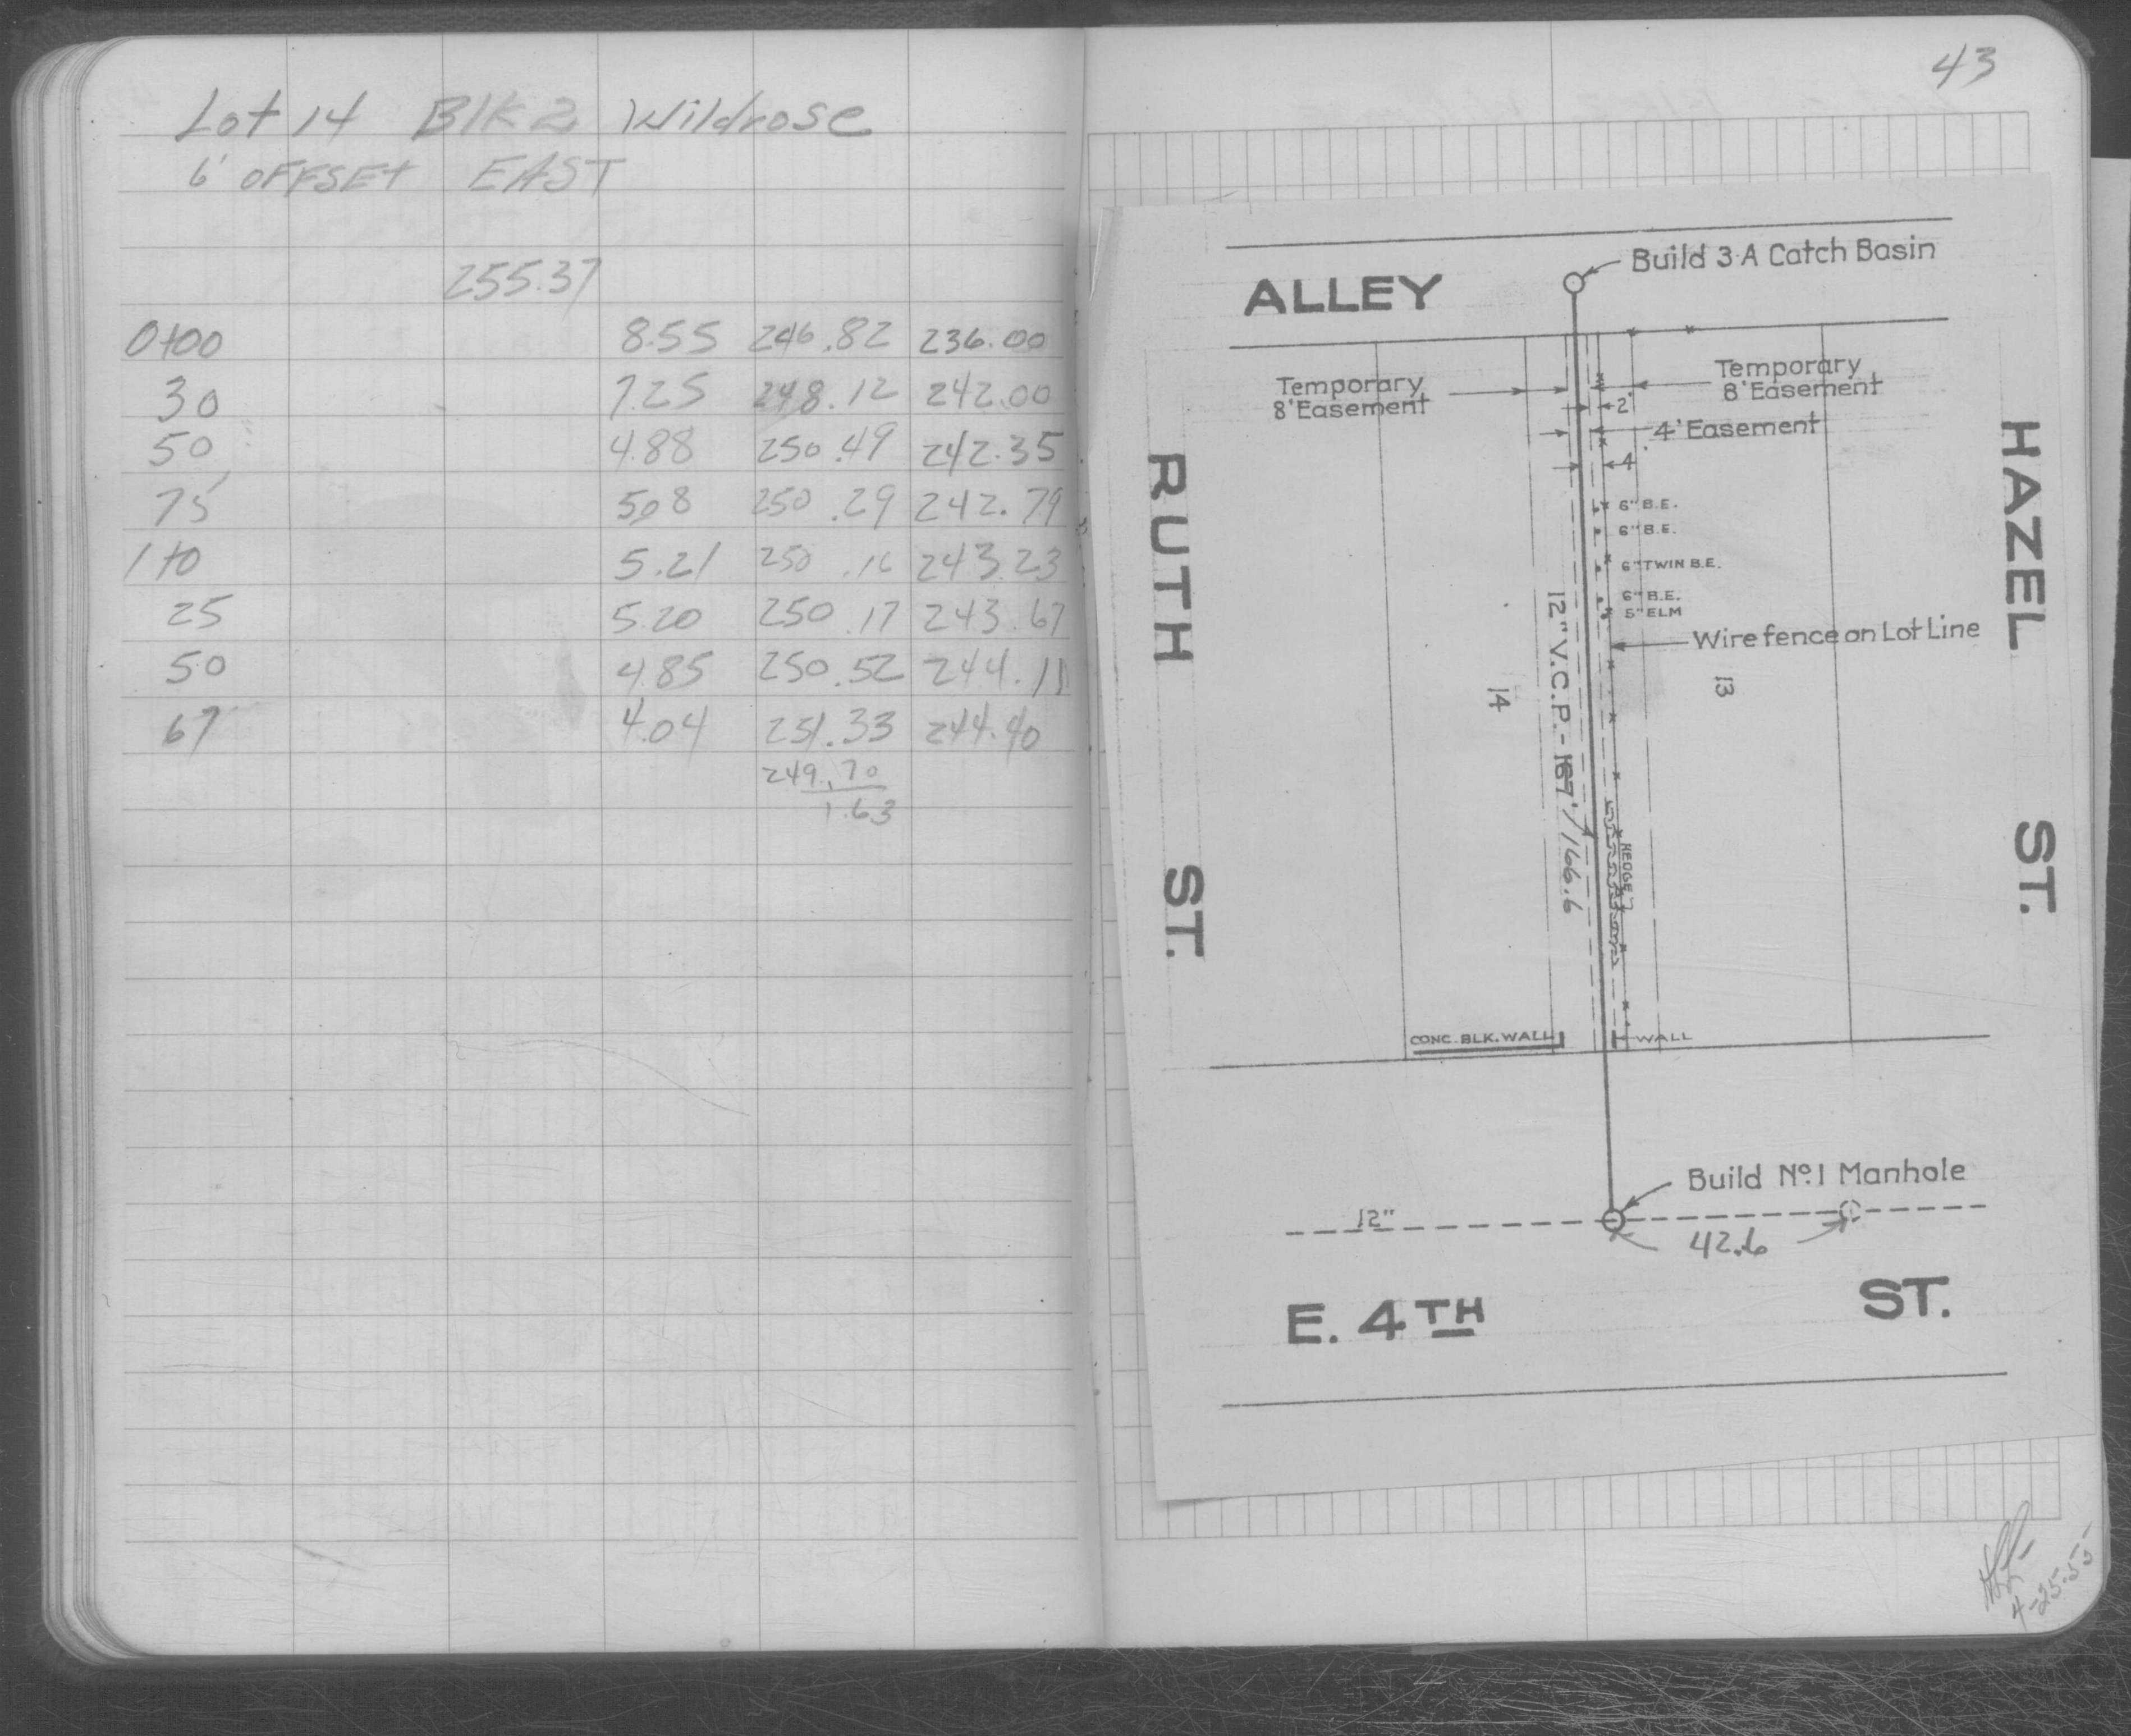 Lot 14 Blk 2 Wildrose
6' OFFSET EAST
255.37
0+00 8.55 246.82 236.00
30 7.25 248.12 242.00
50 4.88 250.49 242.35
75 5.08 250.29 242.79
1+0 5.21 250.16 243.23
25 5.20 250.17 243.67
50 4.85 250.52 244.11
67 4.04 251.33 244.40
249.70
1.63
43
Build 3-A Catch Basin
ALLEY
Temporary
8' Easement
Temporary
8' Easement
2'
4' Easement
4'
6" B.E.
6" B.E.
6" TWIN B.E.
6" B.E.
5" ELM
Wire fence on Lot Line
RUTH ST.
HAZEL ST.
14
13
12" V.C.P. - 167' 166.6
HEDGE
CONC. BLK. WALL
WALL
Build No. 1 Manhole
12"
42.6
E. 4TH ST.
4-25-55